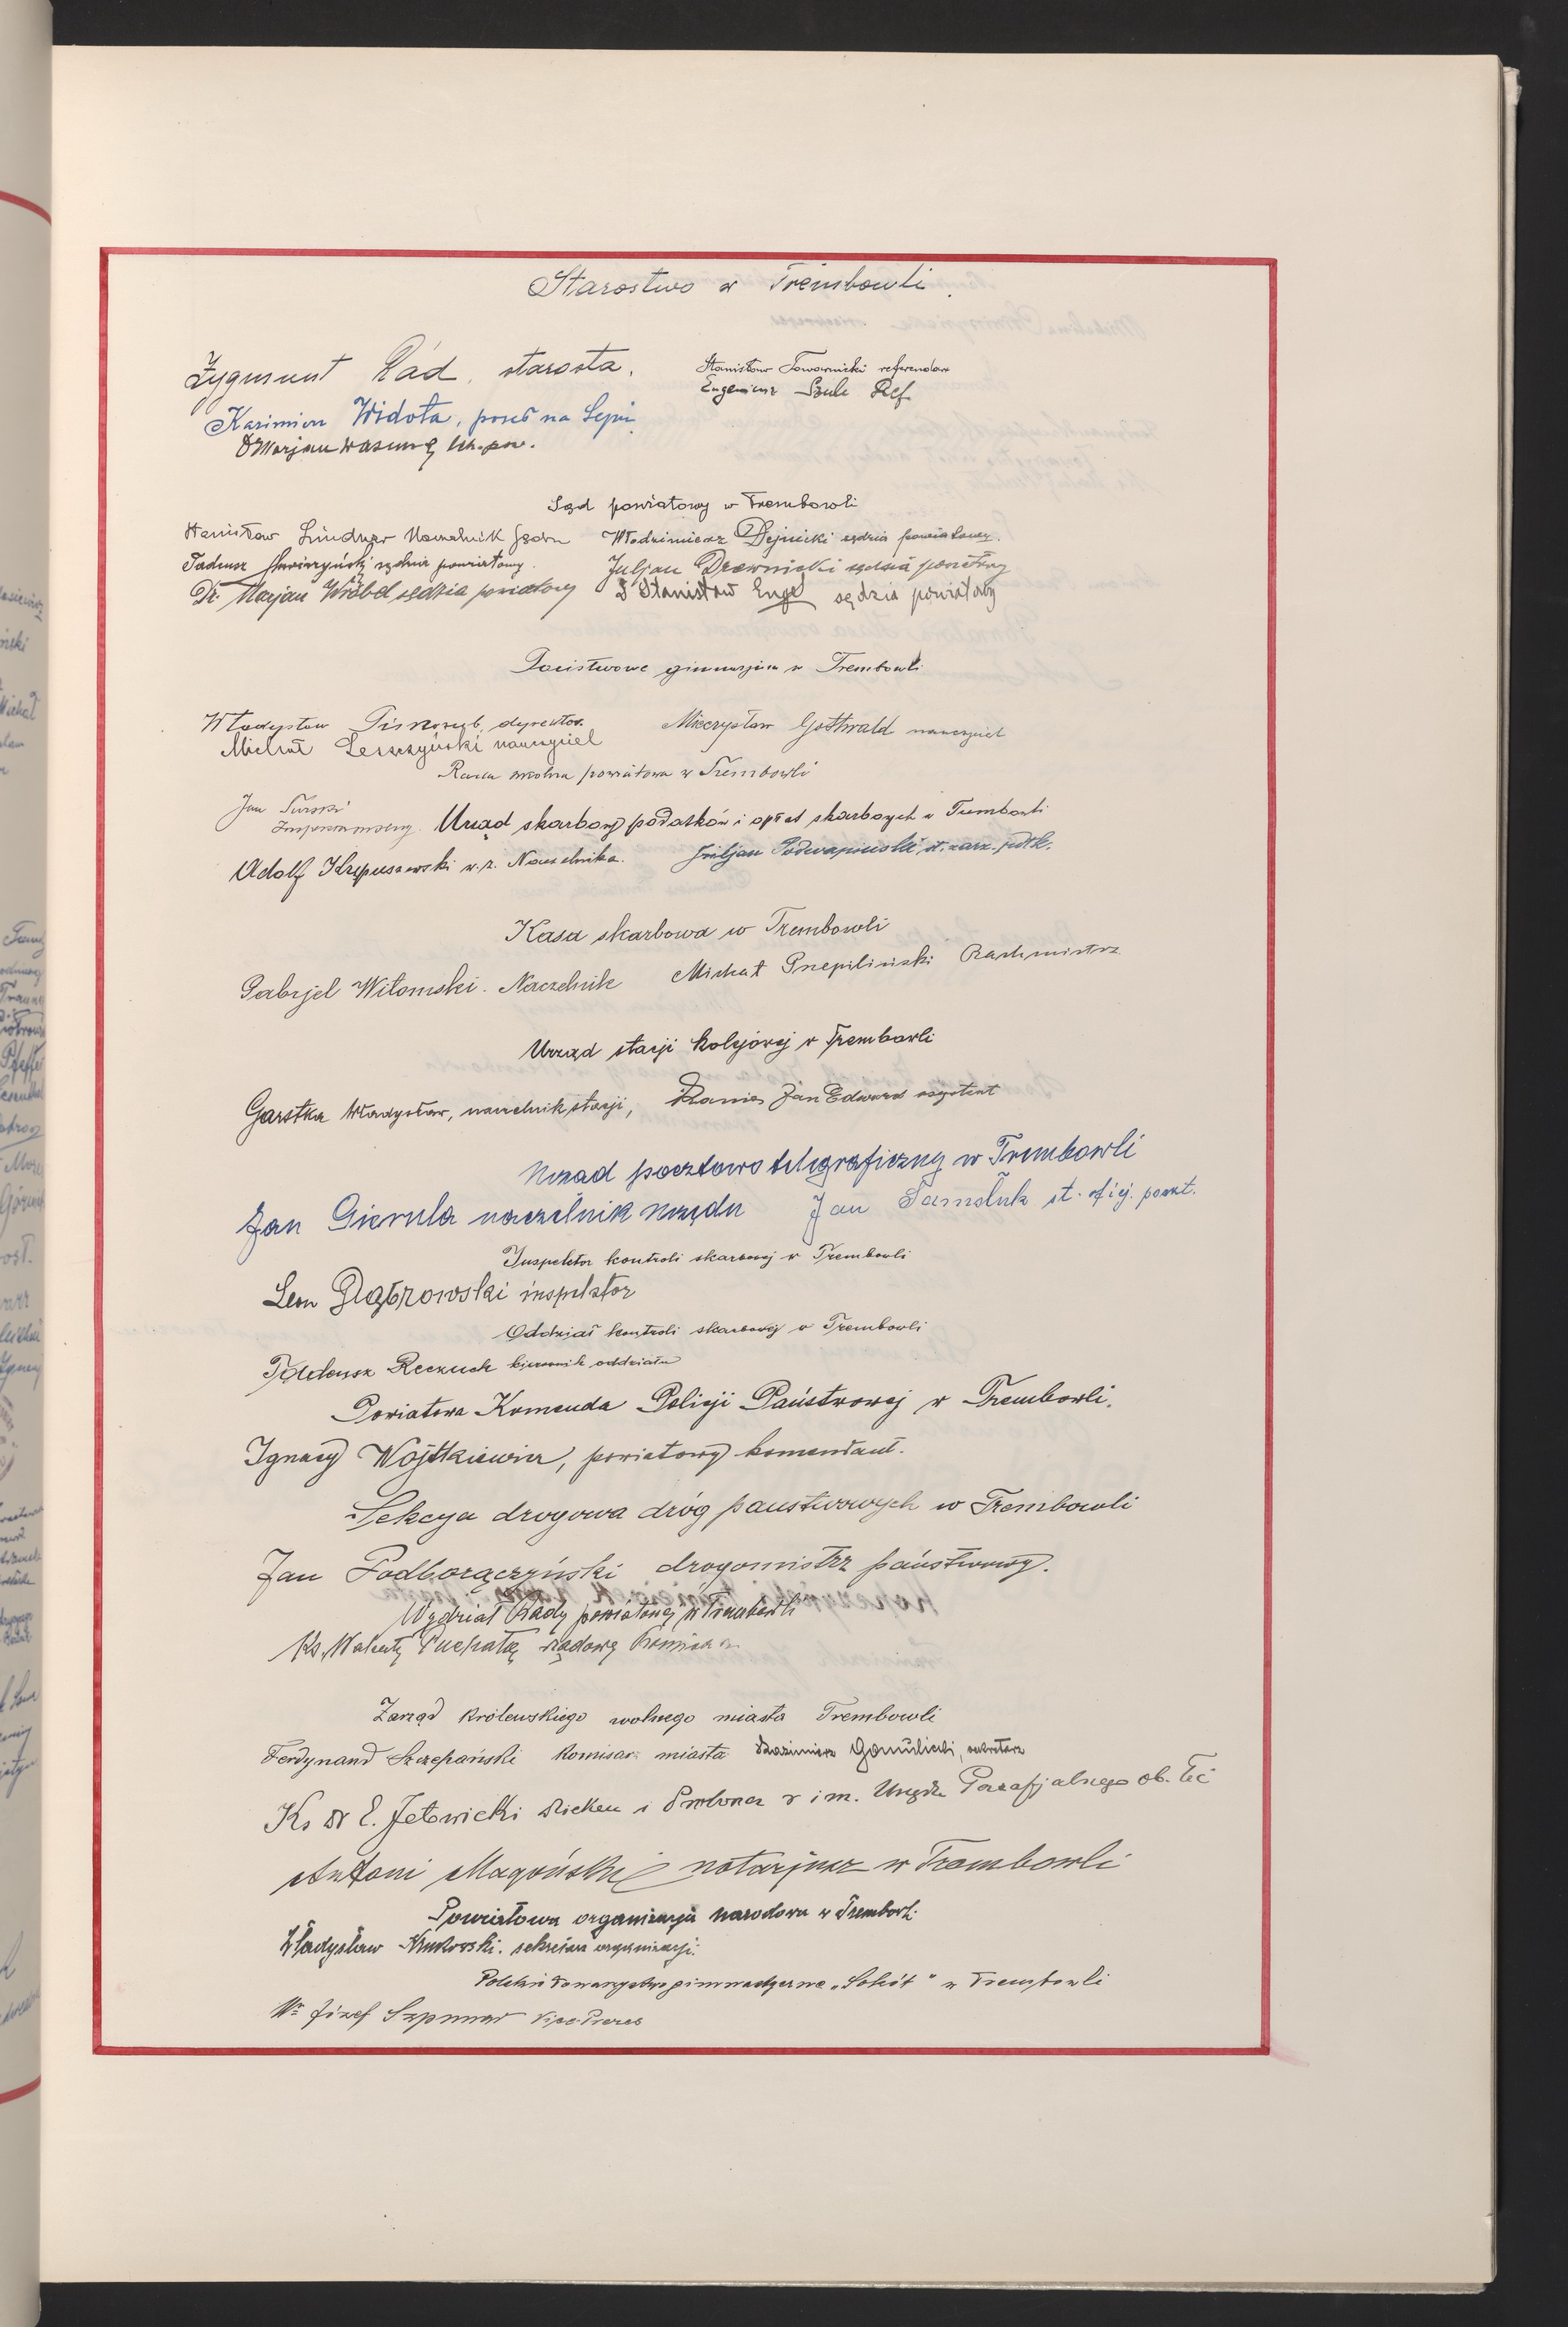 Starostwo w Trembowli.
Zygmunt Rád, starosta.
Stanisław Towarnicki referendarz
Eugeniusz Szulc Ref.
Kazimierz Widota, poseł na Sejm
Dr Marjan Wasung lek. pow.
Sąd powiatowy w Trembowli
Stanisław Lindner Naczelnik Sądu Włodzimierz Dejnicki sędzia powiatowy.
Tadeusz sędzia powiatowy. Juljan Drewnicki sędzia powiatowy
Dr. Marjan Wróbel sędzia powiatowy Dr Stanisław Engel sędzia powiatowy
Państwowe gimnazjum w Trembowli
Władysław Piskozub, dyrektor. Mieczysław Gottwald nauczyciel
Michał Leszczyński nauczyciel
Rada szkolna powiatowa w Trembowli
Jan Turski
Urząd skarbowy podatków i opłat skarbowych w Trembowli
Adolf Krzpuszewski w.z. Naczelnika. Juljan Podwapiński st. zarz. pdtk.
Kasa skarbowa w Trembowli
Gabrjel Witomski. Naczelnik Michał Przepiliński Rachmistrz
Urząd stacji kolejowej w Trembowli
Garstka Władysław, naczelnik stacji, Jan Edward asystent
Urząd pocztowo telegraficzny w Trembowli
Jan Gierula naczelnik urzędu Jan st. oficj. poczt.
Inspektor kontroli skarbowej w Trembowli
Leon Dąbrowski inspektor
Oddział kontroli skarbowej w Trembowli
Tadeusz Reczuch kierownik oddziału
Powiatowa Komenda Policji Państwowej w Trembowli.
Ignacy Wojtkiewicz, powiatowy komendant.
Sekcja drogowa dróg państwowych w Trembowli
Jan Podhorączyński drogomistrz państwowy.
Wydział Rady powiatowej w Trembowli
Ks. Walenty Puchała rządowy Komisarz
Zarząd królewskiego wolnego miasta Trembowli
Ferdynand Szczepański Komisarz miasta Kazimierz Gomulicki, sekretarz
Ks Dr E. Jełowicki dziekan i Proboszcz w im. Urzędu Parafjalnego ob. łać
Antoni Magoński notarjusz w Trembowli
Powiatowa organizacja narodowa w Trembowli
Władysław Krukowski. sekretarz organizacji.
Polskie Towarzystwo gimnastyczne „Sokół" w Trembowli
Józef Szpunar Vice-Prezes